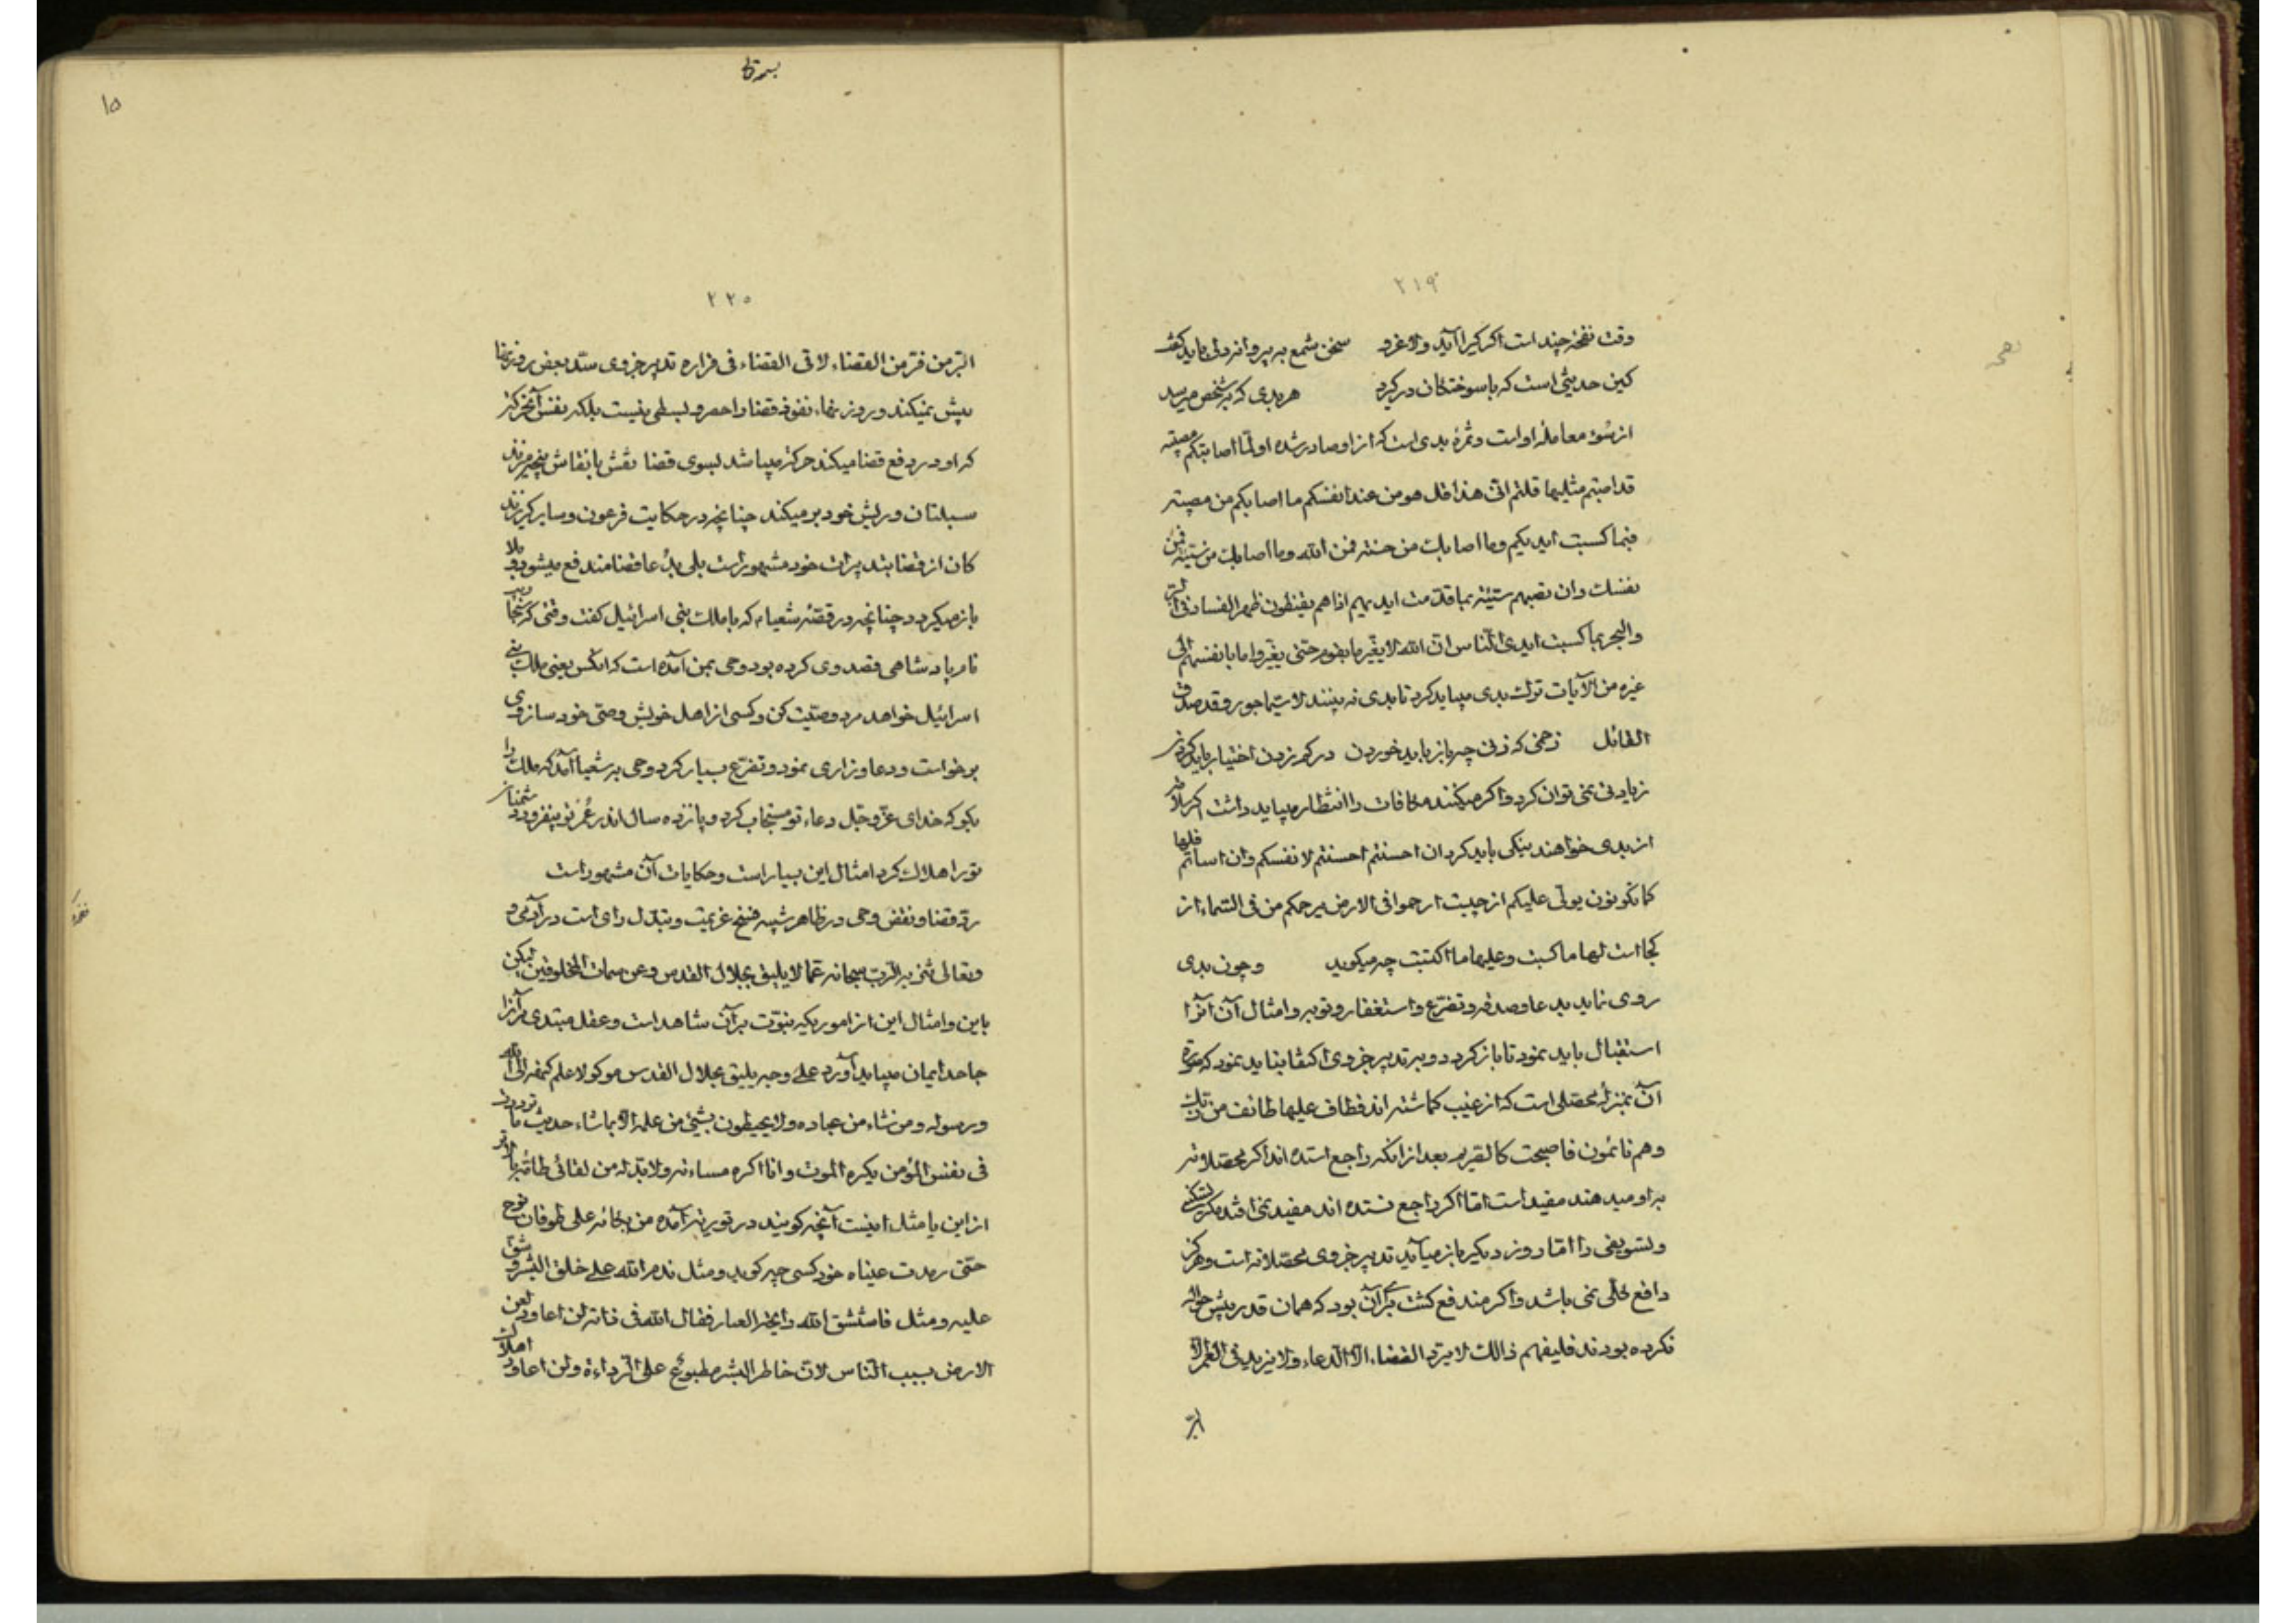 ٢١٩
وقت نفخه چند است اگر گیرا آید ولاغرو سخن شمع به پروانه دلی باید گفت
کین حدیثی است که با سوختگان درگیرد هر بدی که بشخص میرسد
از سوء معامله او است و ثمره بدی است که از او صادر شده اولما اصابتکم مصیبته
قد اصبتم مثلیها قلتم انی هذا قل هو من عند انفسکم ما اصابکم من مصیبته
فبما کسبت ایدیکم وما اصابک من حسنته فمن الله وما اصابک من سیئته فمن
نفسک وان تصبهم سیئه بما قدمت ایدیهم اذاهم یقنطون ظهر الفساد فی البر
والبحر بما کسبت ایدی الناس ان الله لا یغیر ما بقوم حتی یغیروا ما بانفسهم الی
غیره من الآیات ترک بدی میباید کرد تا بدی نه بینند لا سیما جور وقد صدق
القائل زخمی که زنی چه باز باید خوردن در کم زدن اختیار باید کردن
زیادنی نمی توان کرد واگر میکنند مکافات را انتظار میباید داشت اگر
از بدی خواهند نیکی باید کرد ان احسنتم احسنتم لانفسکم وان اسأتم فلها
کما تکونون یولی علیکم از چیست ارحموا فی الارض یرحمکم من فی السماء از
کجا است لها ما کسبت وعلیها ما اکتسبت چه میگوید وچون بدی
روی نماید بدعا وصدقه وتضرع واستغفار وتوبه وامثال آن آنرا
استقبال باید نمود تا بازگردد وبر تدبیر جزوی اکتفا نباید نمود که
آن بمنزله محصلی است که از غیب گماشته اند فطاف علیها طائف من ربک
وهم نائمون فاصبحت کالصریم بعد از آنکه راجع استده اند اگر محصلانه
به او میدهند مفید است اما اگر راجع نستده اند مفید نمی افتد مگر
وتسویفی را اما روز دیگر باز میآید تدبیر جزوی محصلانه است وهرگز
دافع کلی نمی باشد واگر مندفع گشت بر آن بود که همان قدر بیش حواله
نکرده بودند فلیفهم ذالک لا یرد القضاء الا الدعاء ولا یزید فی العمر الا
البر
بسمه تعالی
١٥
٢٢٠
البر من فر من القضاء لاقی القضاء فی فراره تدبیر جزوی سد بعض روزنها
بیش نمیکند وروزنهاء نفوذ قضا را حصر و بسطی نیست بلکه نفس آنحرکة
که او در دفع قضا میکند حرکة میباشد بسوی قضا نقش با نقاش پنجه میزند
سبلتان وریش خود بر میکند چنانچه در حکایت فرعون وسایر گریزند
کان از قضا بتدبیرات خود مشهور است بلی بدعا قضا مندفع میشود وبلا
باز میگردد چنانچه در قصه شعیاء که با ملک بنی اسرائیل گفت وقتی که
نام پادشاهی قصد وی کرده بود وحی بمن آمده است که آنکس یعنی ملک بنی
اسرائیل خواهد مرد وصیت کن وکسی از اهل خویش وصی خود ساز وی
برخواست ودعا وزاری نمود وتضرع بسیار کرد وحی به شعیا آمد که ملک را
بگو که خدای عز وجل دعاء تو مستجاب کرد وپانزده سال اندر عمر تو بیفزود ودشمنان
تو را هلاک کرد امثال این بسیار است وحکایات آن مشهور است
رد قضا ونقض وحی در ظاهر شبیه فسخ عزیمت وتبدل رای است در آدمی و
وتعالی شئنه الرب سبحانه عما لا یلیق بجلال القدس وعن سمات المخلوقین لیکن
باین وامثال این از امور یکیه نبوت بر آن شاهد است وعقل مبتدی مر آنرا
جاحد ایمان میباید آورد علی وجه یلیق بجلال القدس موکولا علم کیفیته الی الله
ورسوله ومن شاء من عباده ولا یحیطون بشیء من علمه الا بما شاء حدیث ما ترددت
فی نفس المؤمن یکره الموت وانا اکره مسائته ولابد له من لقائی
از این یا مثل اینست آنچه گویند در توریة آمده من بکائه علی طوفان نوح
حتی رمدت عیناه خود کسی چه گوید ومثل ندم الله علی خلق البشر وشق
علیه ومثل فاستنشق الله رایحة فقال الله فی ذاته لن اعاود لعن
الارض بسبب الناس لان خاطر البشر مطبوع علی الرداءة ولن اعاود اهلاک